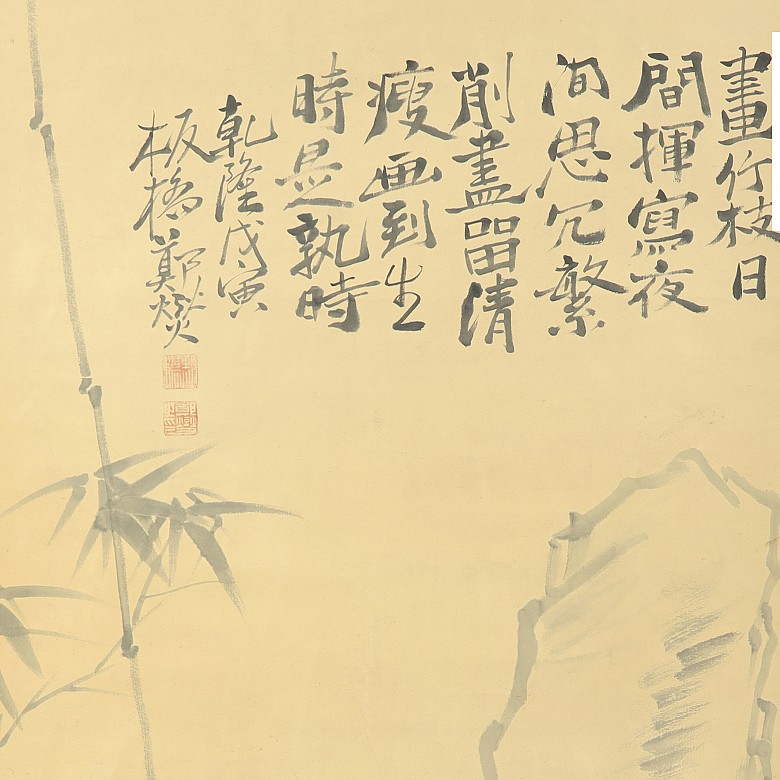 畫竹枝日
間揮寫夜
間思冗繁
削盡留清
瘦画到生
時是孰時
乾隆戊寅
板橋鄭燮